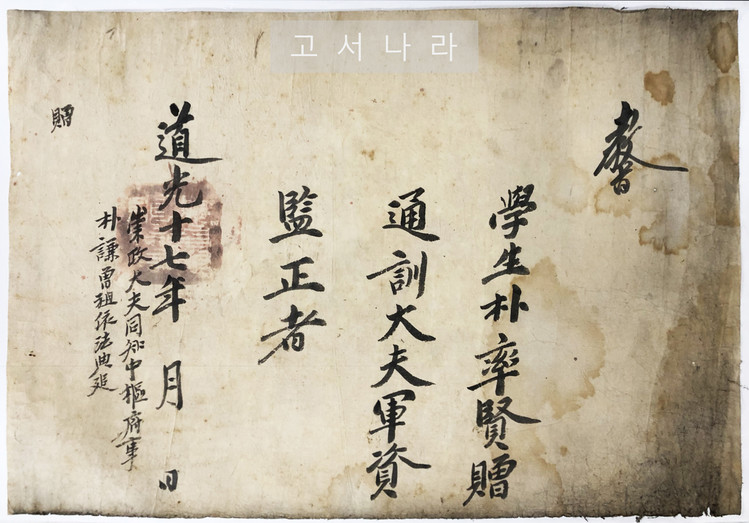 고서나라
教旨
學生朴率賢贈
通訓大夫軍資
監正者
道光十七年 月 日
崇政大夫同知中樞府事
朴謙曾祖依法典追
贈